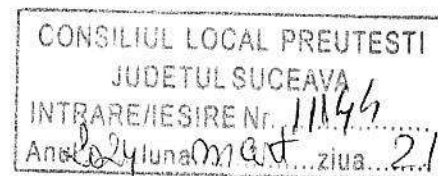 CONSILIUL LOCAL PREUTESTI
JUDETUL SUCEAVA
INTRARE/IESIRE Nr. 11144
Anul 2024 luna mart ziua 21